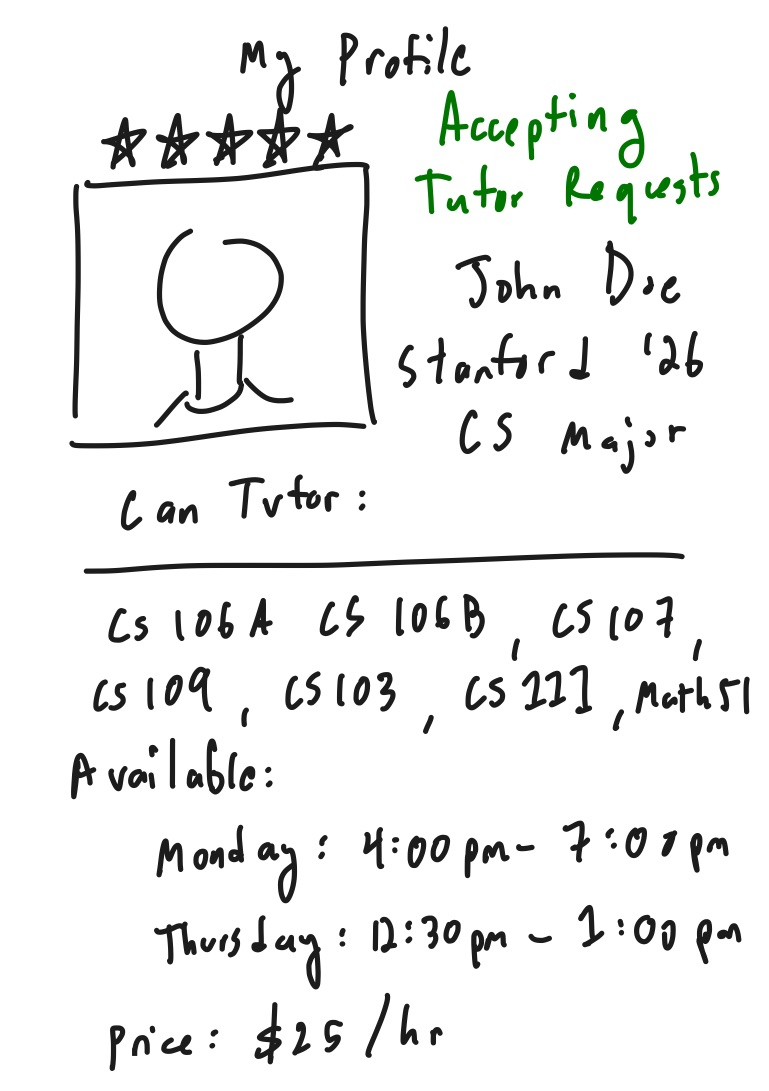 My Profile
Accepting
Tutor Requests
John Doe
Stanford '26
CS Major
Can Tutor:
CS 106A CS 106B, CS 107,
CS 109, CS 103, CS 221, Math 51
Available:
Monday: 4:00 pm - 7:00 pm
Thursday: 12:30 pm - 1:00 pm
Price: $25 / hr